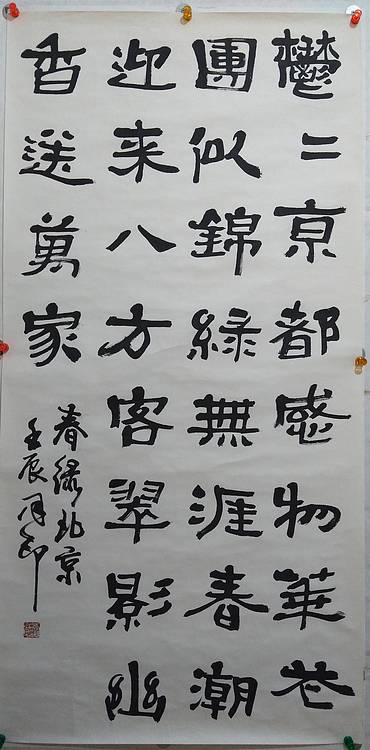 鬱二京都感物華花
團似錦緑無涯春潮
迎来八方客翠影幽
香送萬家
春緑北京
壬辰